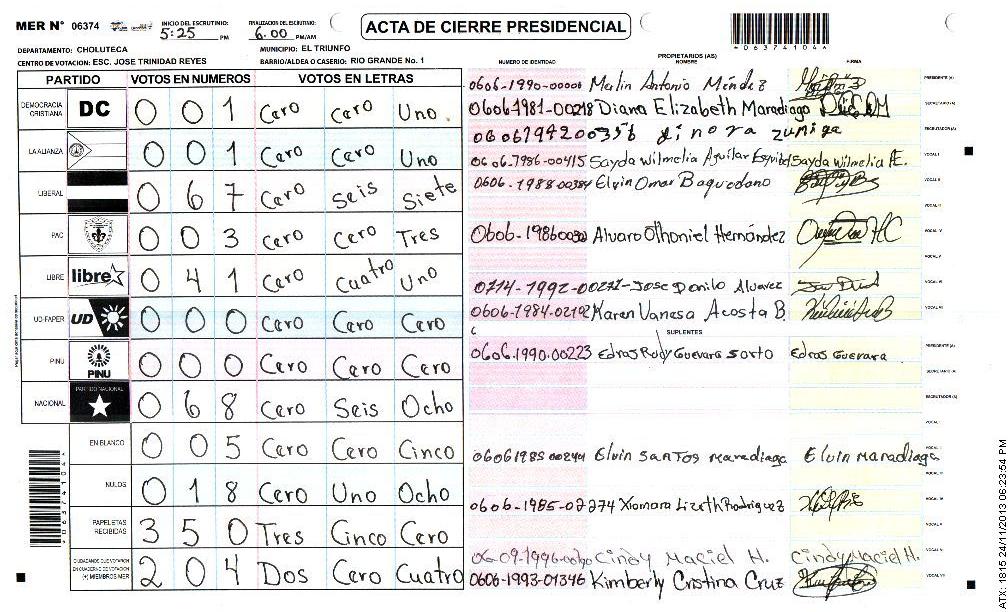 MER Nº 06374 INICIO DEL ESCRUTINIO: 5:25 PM FINALIZACION DEL ESCRUTINIO: 6.00 PM/AM ACTA DE CIERRE PRESIDENCIAL
DEPARTAMENTO: CHOLUTECA MUNICIPIO: EL TRIUNFO 06374104
CENTRO DE VOTACION: ESC. JOSE TRINIDAD REYES BARRIO/ALDEA O CASERIO: RIO GRANDE No. 1
PARTIDO VOTOS EN NUMEROS VOTOS EN LETRAS
DEMOCRACIA CRISTIANA DC 0 0 1 Cero Cero Uno
LA ALIANZA 0 0 1 Cero Cero Uno
LIBERAL 0 6 7 Cero Seis Siete
PAC 0 0 3 Cero Cero Tres
LIBRE libre 0 4 1 Cero Cuatro Uno
UD-FAPER UD 0 0 0 Cero Cero Cero
PINU PINU 0 0 0 Cero Cero Cero
NACIONAL PARTIDO NACIONAL 0 6 8 Cero Seis Ocho
EN BLANCO 0 0 5 Cero Cero Cinco
NULOS 0 1 8 Cero Uno Ocho
PAPELETAS RECIBIDAS 3 5 0 Tres Cinco Cero
CIUDADANOS QUE VOTARON EN CUADERNO DE VOTACION (+) MIEMBROS MER 2 0 4 Dos Cero Cuatro
06374104
PROPIETARIOS (AS)
NUMERO DE IDENTIDAD NOMBRE FIRMA
0606-1990-00000 Merlin Antonio Méndez PRESIDENTE (A)
0606-1981-00218 Diana Elizabeth Maradiaga SECRETARIO (A)
0606199200356 dinora zuniga ESCRUTADOR (A)
0606-1986-00415 Sayda Wilmelia Aguilar Esquibel Sayda Wilmelia AE. VOCAL I
0606-1988-00384 Elvin Omar Baquedano VOCAL II
VOCAL III
Alvaro Othoniel Hernández VOCAL IV
VOCAL V
0714-1992-00271 Jose Danilo Alvarez VOCAL VI
0606-1984-02192 Karen Vanesa Acosta B. VOCAL VII
SUPLENTES
0606-1990-00223 Edras Rudy Guevara Sorto Edras Guevara PRESIDENTE (A)
SECRETARIO (A)
ESCRUTADOR (A)
VOCAL I
0606 1985 00244 Elvin Santos maradiaga Elvin Maradiaga VOCAL II
VOCAL III
0606-1985-02274 Xiomara Lizeth Rodriguez VOCAL IV
VOCAL V
Cindy Maciel H. Cindy Maciel H. VOCAL VI
0606-1993-01346 Kimberly Cristina Cruz VOCAL VII
ATX: 1815 24/11/2013 06:23:54 PM